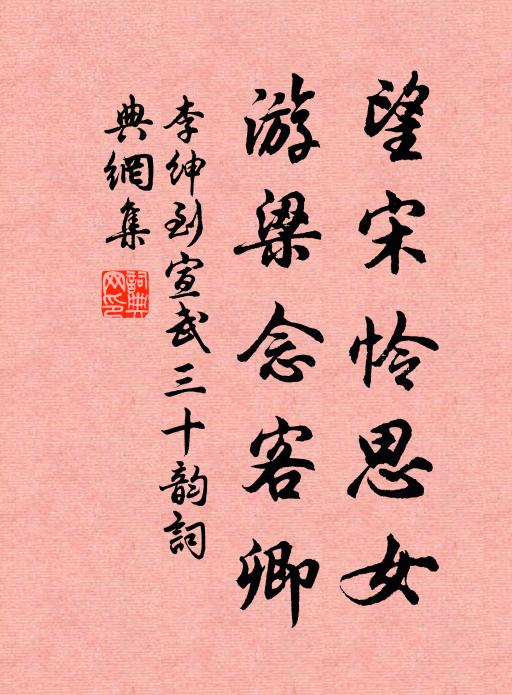 望宋怜思女
游梁念客卿
李绅到宣武三十韵詞
典網集
詞典
网印